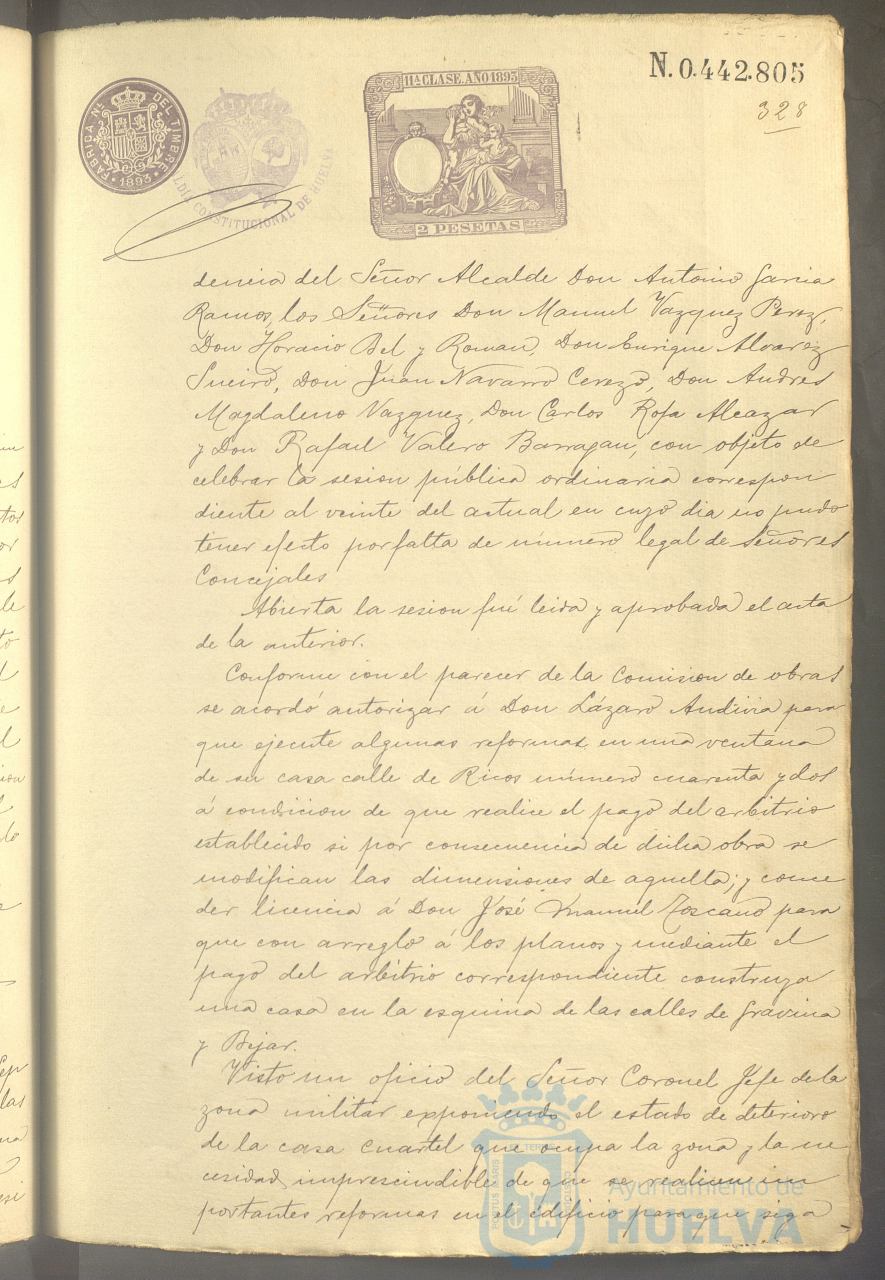 N. 0.442.805
328
FABRICA Nl. DEL TIMBRE
1893
CONSTITUCIONAL DE HUELVA
11ª CLASE. AÑO 1893
2 PESETAS
dencia del Señor Alcalde Don Antonio Garcia
Ramos, los Señores Don Manuel Vazquez Perez,
Don Horacio Bel y Roman, Don Enrique Alvarez
Sueiro, Don Juan Navarro Cerezo, Don Andres
Magdaleno Vazquez, Don Carlos Rofa Alcazar
y Don Rafael Valero Barragan, con objeto de
celebrar la sesion pública ordinaria correspon
diente al veinte del actual en cuyo dia no pudo
tener efecto por falta de número legal de Señores
Concejales
Abierta la sesion fué leida y aprobada el acta
de la anterior.
Conforme con el parecer de la Comision de obras
se acordó autorizar á Don Lázaro Andivia para
que ejecute algunas reformas en una ventana
de su casa calle de Ricos número cuarenta y dos
á condicion de que realice el pago del arbitrio
establecido si por consecuencia de dicha obra se
modifican las dimensiones de aquella; y conce
der licencia á Don José Manuel Toscano para
que con arreglo á los planos y mediante el
pago del arbitrio correspondiente construya
una casa en la esquina de las calles de Gravina
y Bejar.
Visto un oficio del Señor Coronel Jefe de la
zona militar exponiendo el estado de deterioro
de la casa cuartel que ocupa la zona y la ne
cesidad imprescindible de que se realicen im
portantes reformas en el edificio para que siga
Ayuntamiento de
HUELVA